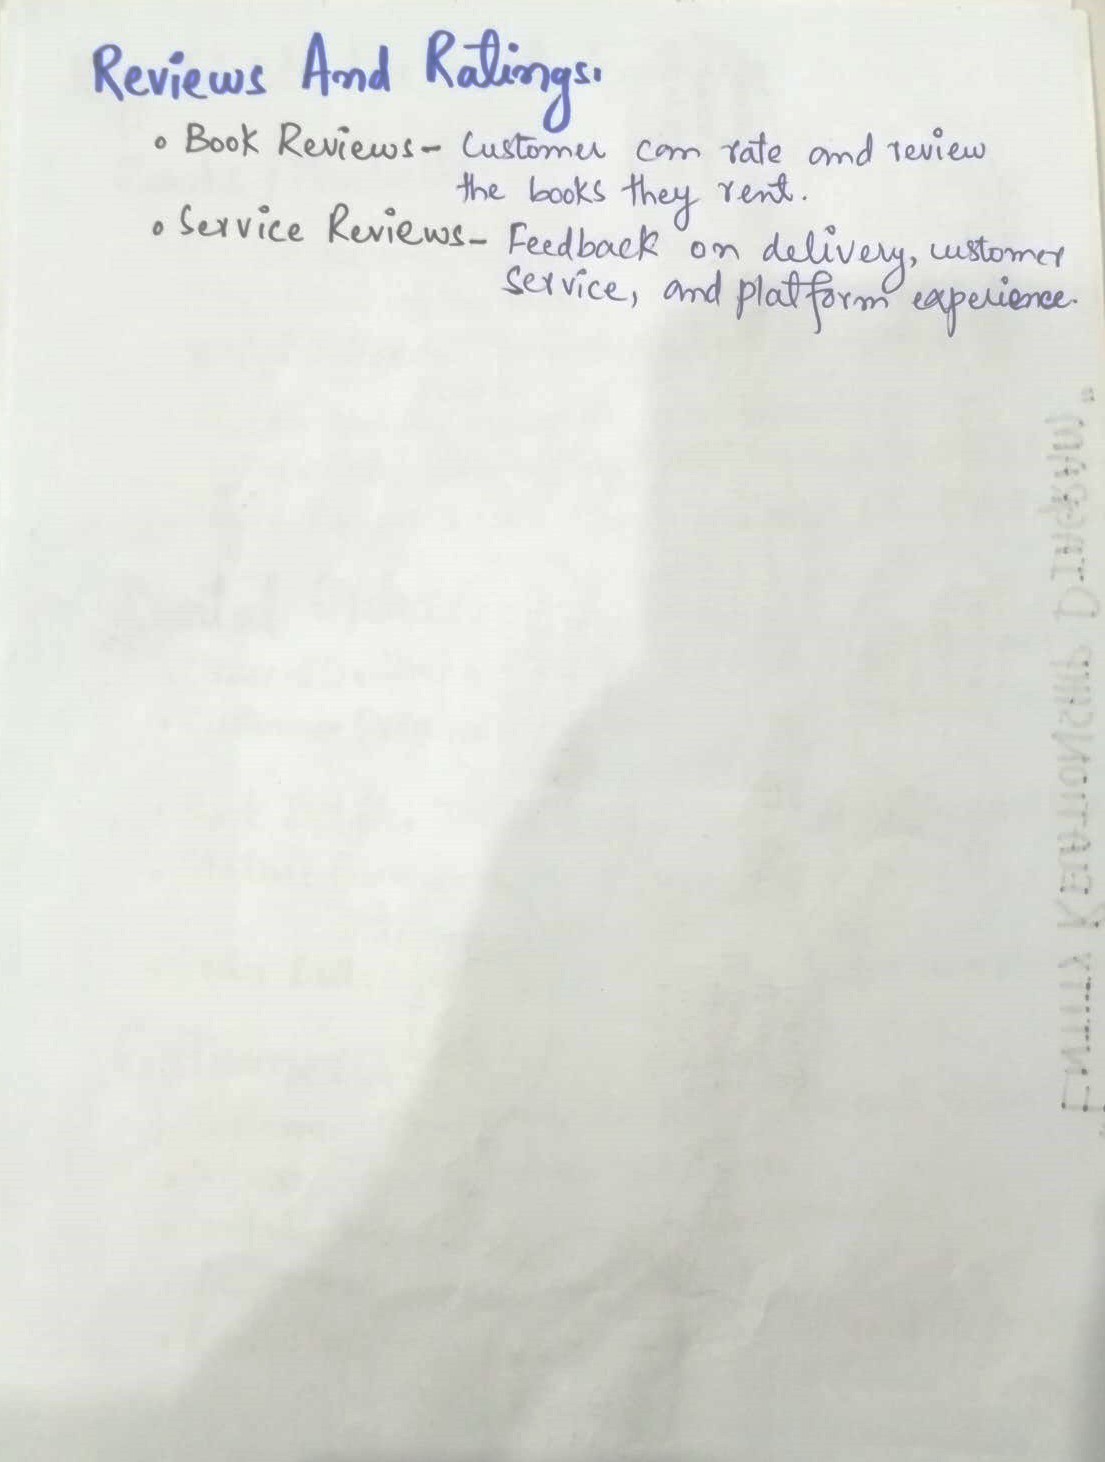 Reviews And Ratings.
• Book Reviews - Customer can rate and review
the books they rent.
• Service Reviews - Feedback on delivery, customer
service, and platform experience.
"ENTITY RELATIONSHIP DIAGRAM"